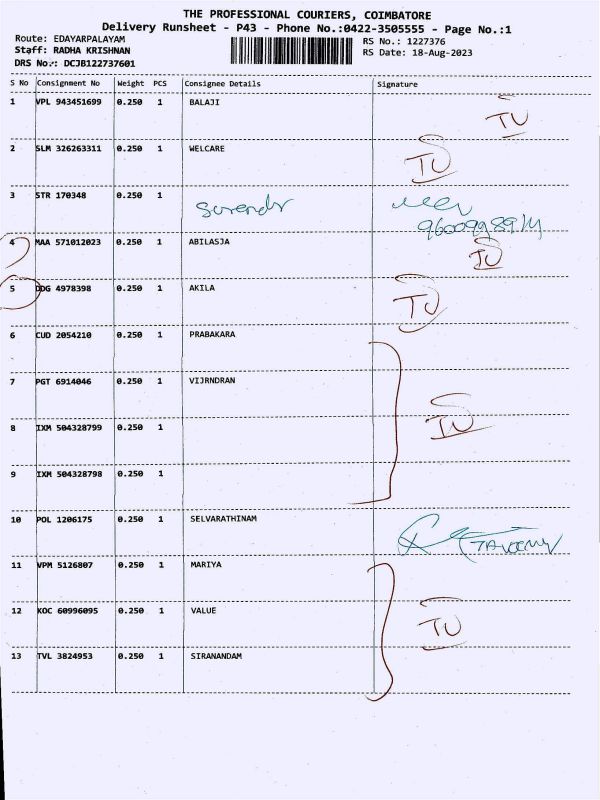 THE PROFESSIONAL COURIERS, COIMBATORE
Delivery Runsheet - P43 - Phone No.:0422-3505555 - Page No.:1
Route: EDAYARPALAYAM
RS No.: 1227376
Staff: RADHA KRISHNAN
RS Date: 18-Aug-2023
DRS No.: DCJB122737601
S No Consignment No Weight PCS Consignee Details Signature
1 VPL 943451699 0.250 1 BALAJI
2 SLM 326263311 0.250 1 WELCARE
3 STR 170348 0.250 1 Surendr
4 MAA 571012023 0.250 1 ABILASJA
5 DDG 4978398 0.250 1 AKILA
6 CUD 2054210 0.250 1 PRABAKARA
7 PGT 6914046 0.250 1 VIJRNDRAN
8 IXM 504328799 0.250 1
9 IXM 504328798 0.250 1
10 POL 1206175 0.250 1 SELVARATHINAM
11 VPM 5126807 0.250 1 MARIYA
12 KOC 60996095 0.250 1 VALUE
13 TVL 3824953 0.250 1 SIRANANDAM